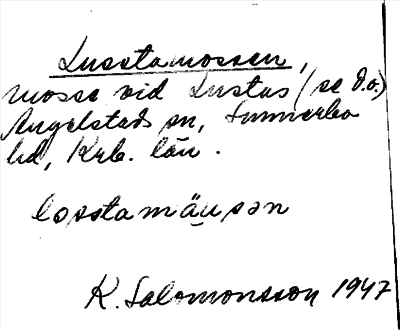 Lusstamossen,
mosse vid Lustas (se d.o.)
Angelstads sn, Sunnerbo
hd, Krb. län.
losstamäusən
K. Salomonsson 1947